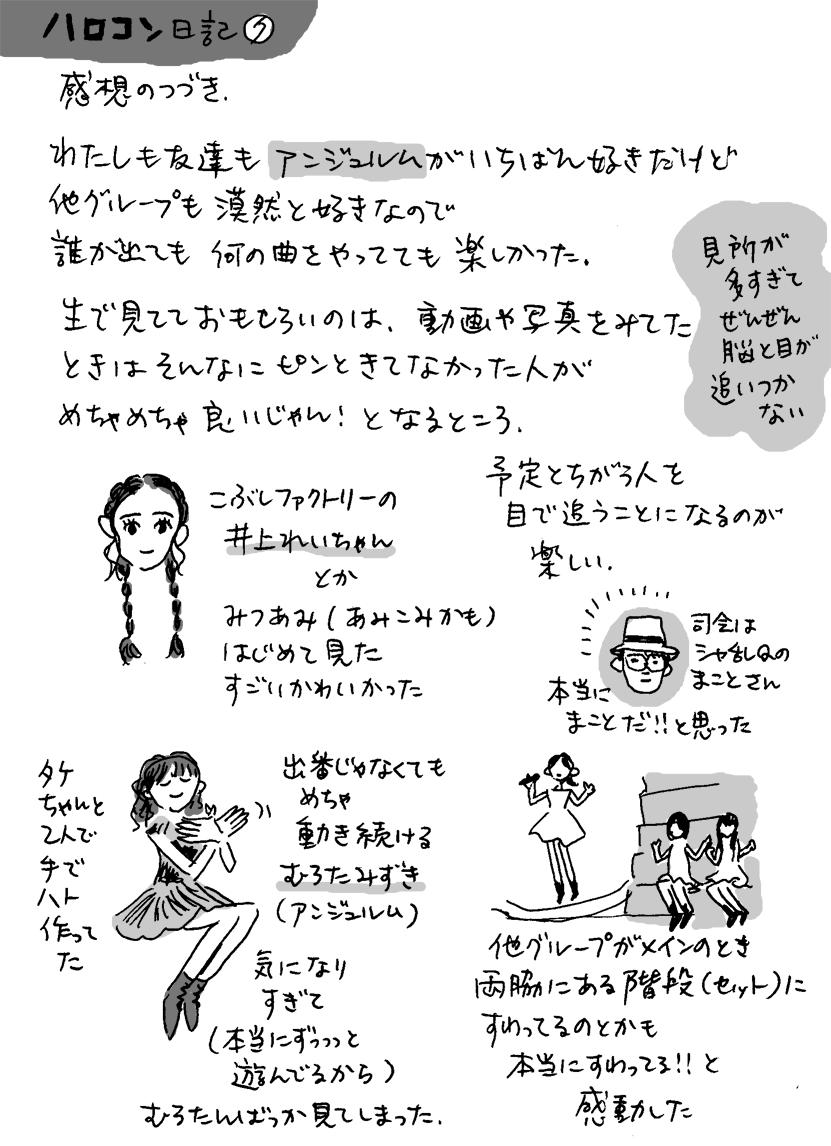 ハロコン日記⑦
感想のつづき.
わたしも友達もアンジュルムがいちばん好きだけど
他グループも漠然と好きなので
誰が出ても何の曲をやってても楽しかった.
見所が
多すぎて
ぜんぜん
脳と目が
追いつか
ない
生で見てておもしろいのは、動画や写真をみてた
ときはそんなにピンときてなかった人が
めちゃめちゃ良いじゃん!となるところ.
予定とちがう人を
目で追うことになるのが
楽しい.
こぶしファクトリーの
井上れいちゃん
とか
みつあみ(あみこみかも)
はじめて見た
すごいかわいかった
司会は
シャ乱Qの
まことさん
本当に
まことだ!!と思った
タケ
ちゃんと
2人で
手で
ハト
作って
た
出番じゃなくても
めちゃ
動き続ける
むろたみずき
(アンジュルム)
気になり
すぎて
(本当にずっっっと
遊んでるから)
むろたんばっか見てしまった.
他グループがメインのとき
両脇にある階段(セット)に
すわってるのとかも
本当にすわってる!!と
感動した